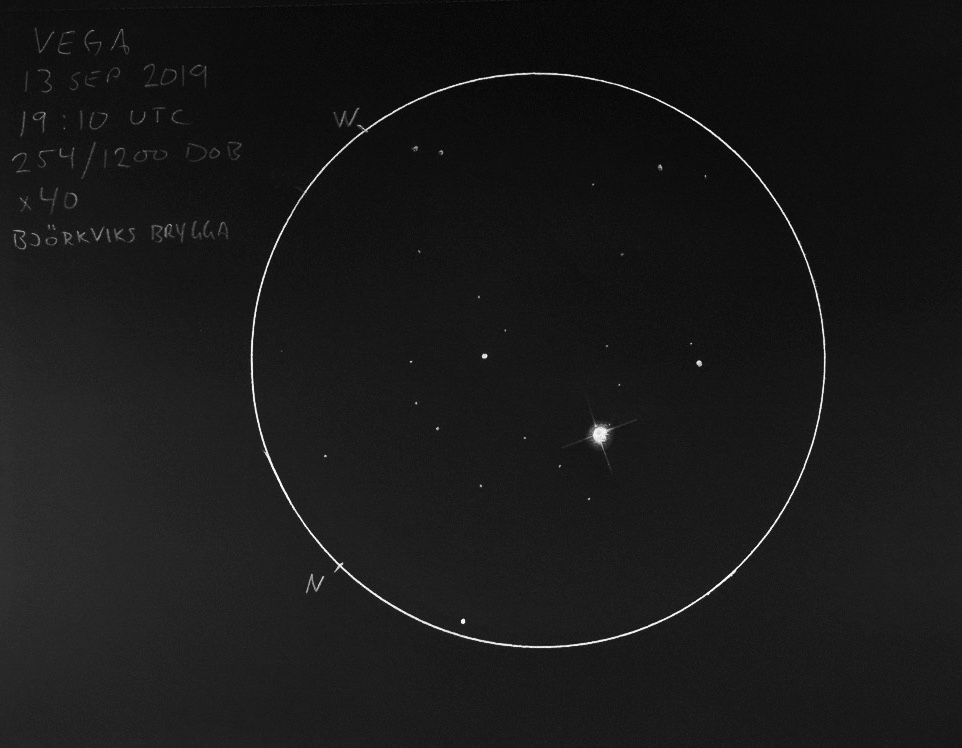 VEGA
13 SEP 2019
19:10 UTC
254/1200 DOB
x40
BJÖRKVIKS BRYGGA
W
N